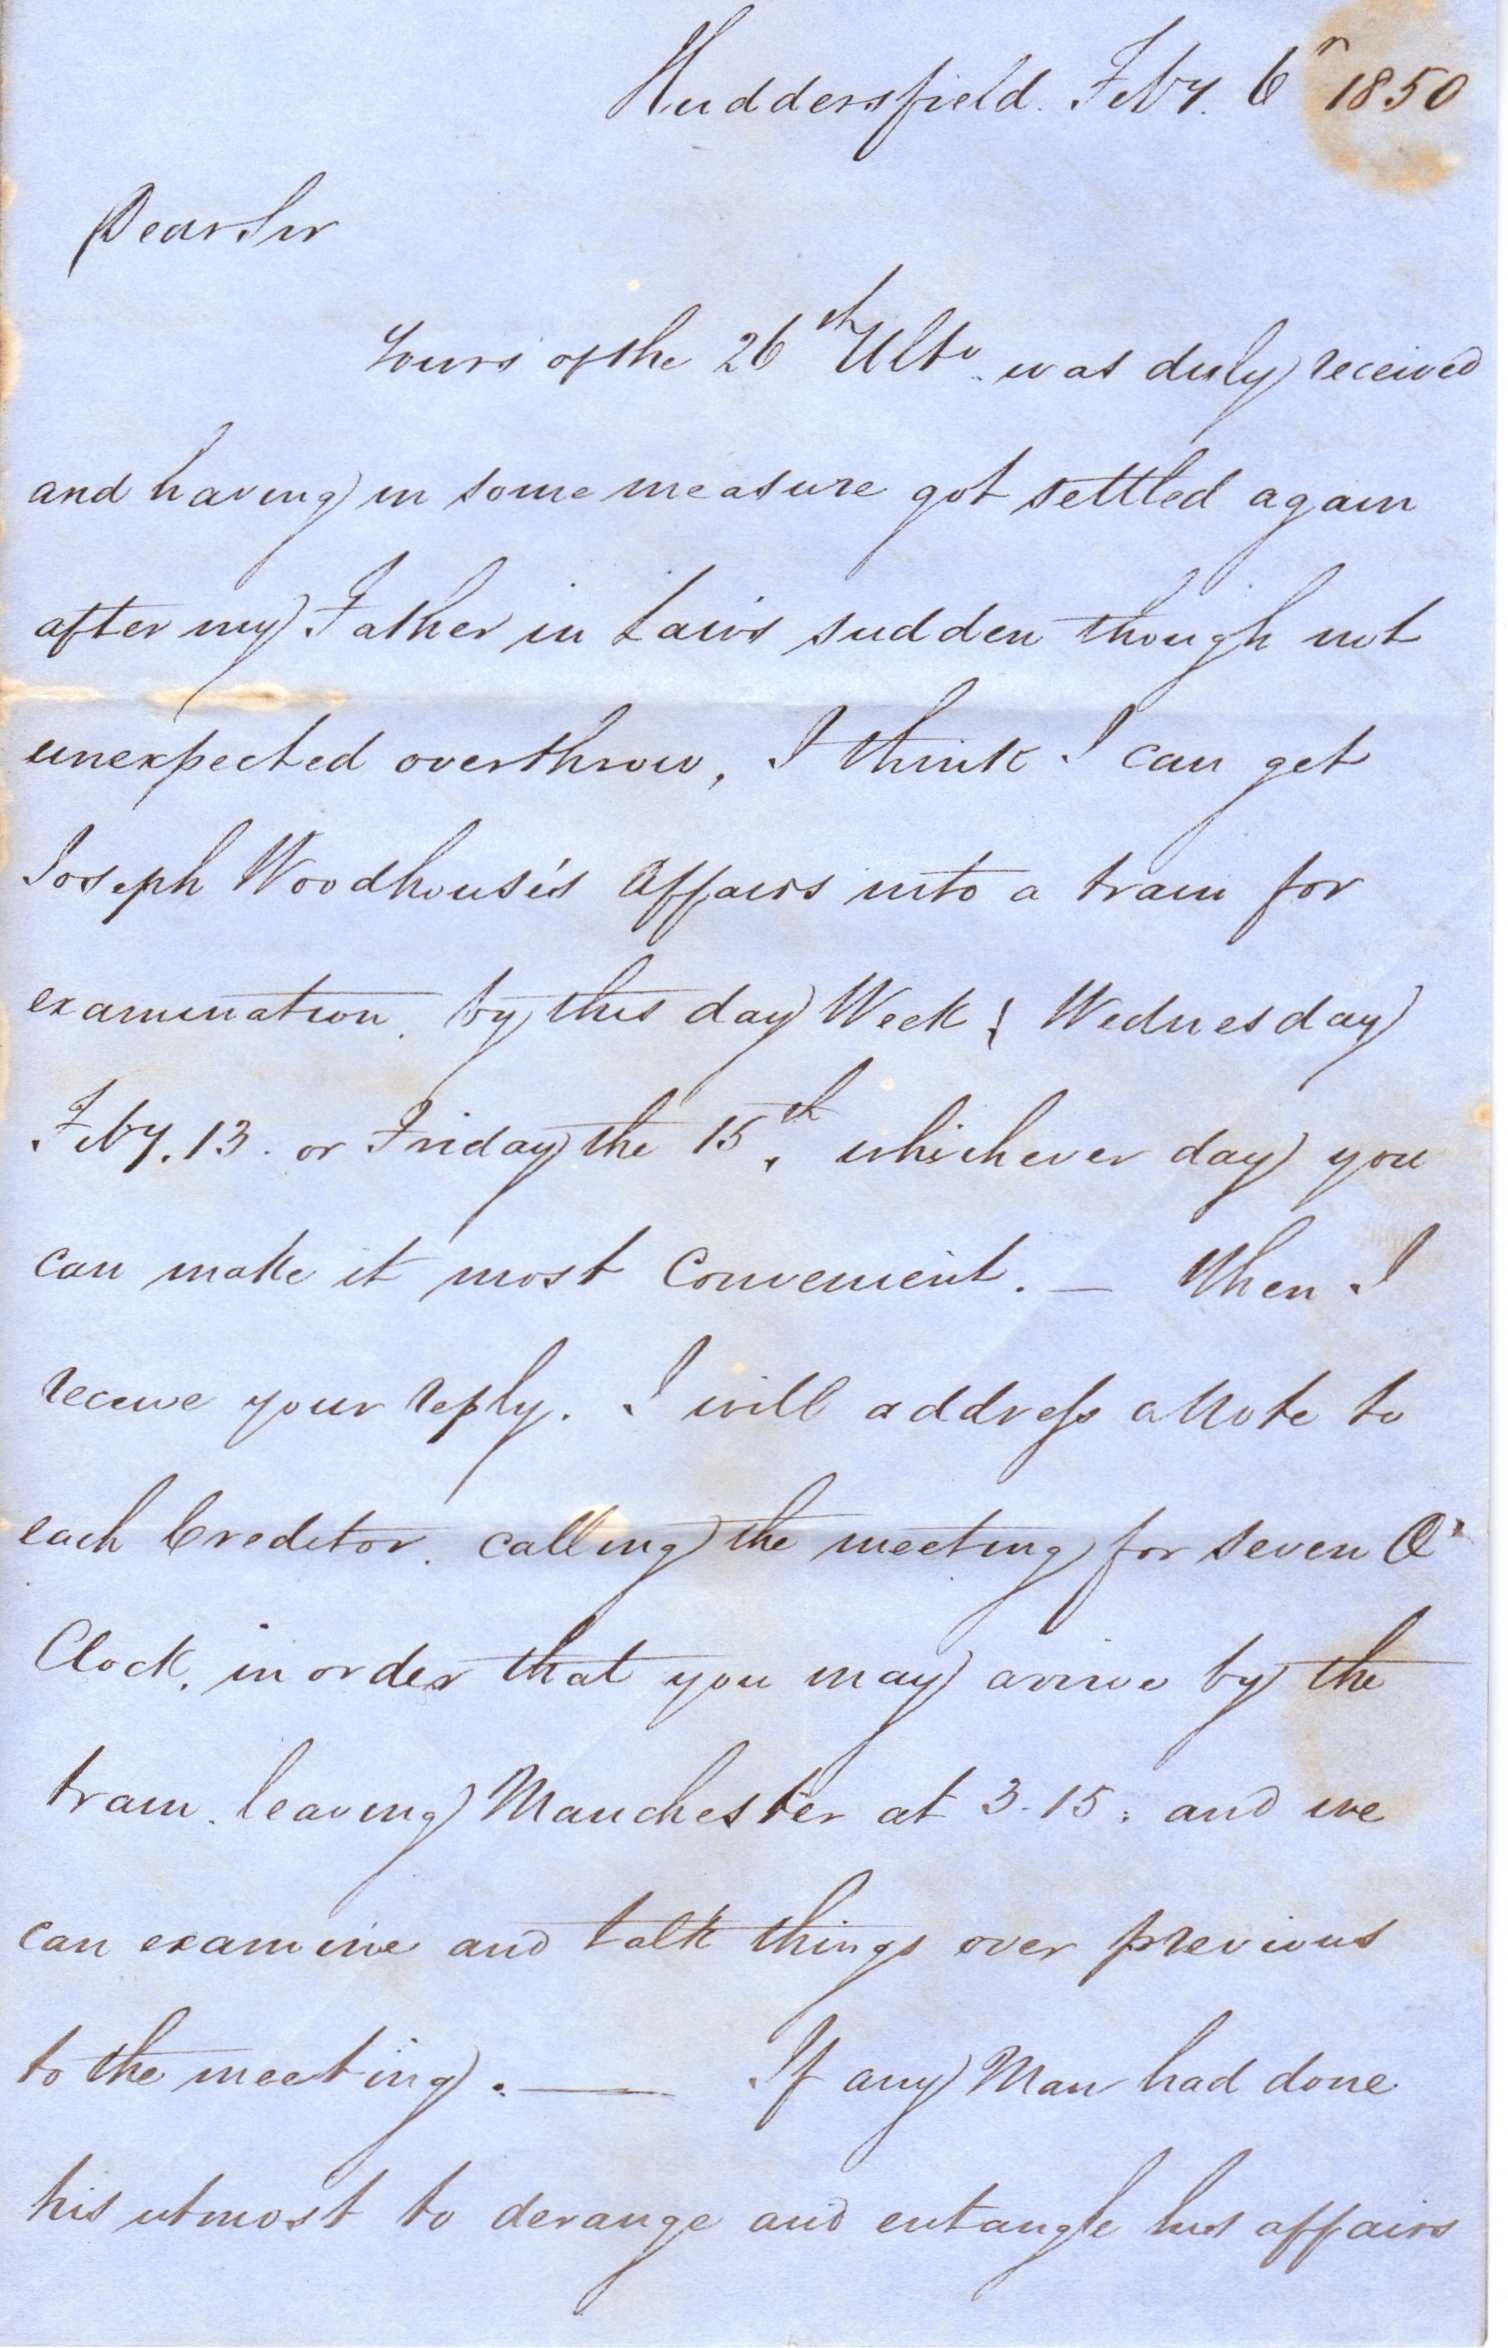 Huddersfield. Feby. 6th 1850
Dear Sir
Yours of the 26th Ulto. was duly received
and having in some measure got settled again
after my Father in Laws sudden though not
unexpected overthrow, I think I can get
Joseph Woodhouse's Affairs into a train for
examination. by this day Week, Wednesday
Feby. 13. or Friday the 15th, whichever day you
can make it most convenient. — When I
receive your reply. I will address a Note to
each Creditor. calling the meeting for seven O'
Clock, in order that you may arrive by the
train. leaving Manchester at 3.15: and we
can examine and talk things over previous
to the meeting. — If any Man had done
his utmost to derange and entangle his affairs